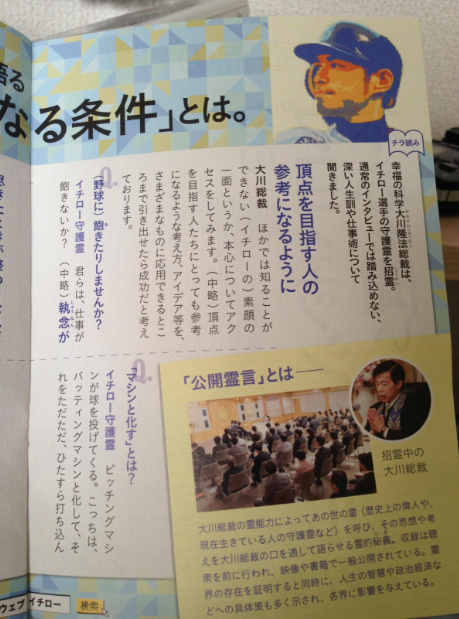 語る
なる条件」とは。
チラ読み
幸福の科学大川隆法総裁は、
イチロー選手の守護霊を招霊。
通常のインタビューでは踏み込めない、
深い人生訓や仕事術について
聞きました。
頂点を目指す人の
参考になるように
大川総裁 ほかでは知ることが
できない(イチローの)素顔の
一面というか、本心についてアク
セスをしてみます。(中略)頂点
を目指す人たちにとっても参考
になるような考え方、アイデア等を、
さまざまなものに応用できるとこ
ろまで引き出せたら成功だと考え
ております。
Q.
(野球に)飽きたりしませんか?
イチロー守護霊 君らは、仕事が
飽きないか? (中略)執念が
Q.
マシンと化す」とは?
イチロー守護霊 ピッチングマシ
ンが球を投げてくる。こっちは、
バッティングマシンと化して、そ
れをただただ、ひたすら打ち込ん
「公開霊言」とは――
招霊中の
大川総裁
大川総裁の霊能力によってあの世の霊(歴史上の偉人や、
現在生きている人の守護霊など)を呼び、その思想や考
えを大川総裁の口を通して語らせる霊的秘義。収録は聴
衆を前に行われ、映像や書籍で一般公開されている。霊
界の存在を証明すると同時に、人生の智慧や政治経済な
どへの具体策も多く示され、各界に影響を与えている。
ウェブ イチロー
検索